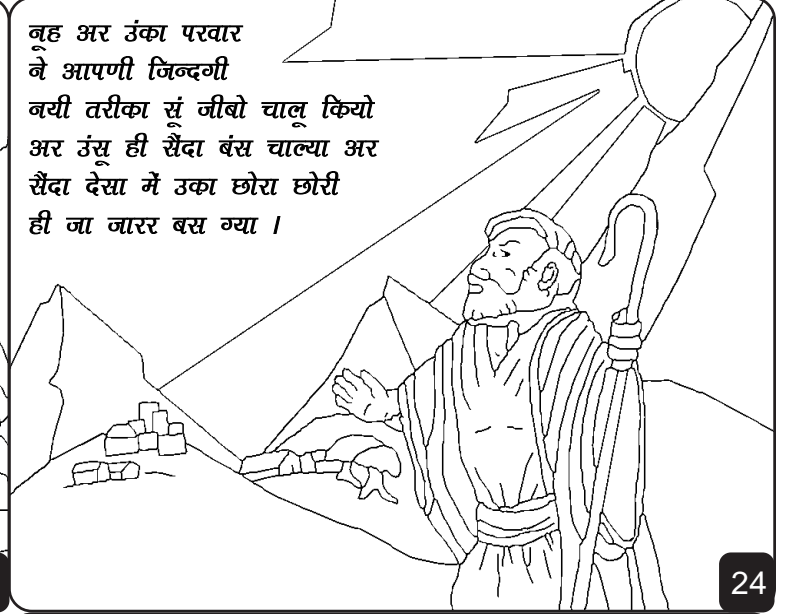 नूह अर उंका परवार
ने आपणी जिन्दगी
नयी तरीका सूं जीबो चालू कियो
अर उंसू ही सैंदा बंस चाल्या अर
सैंदा देसा में उका छोरा छोरी
ही जा जारर बस ग्या ।
24